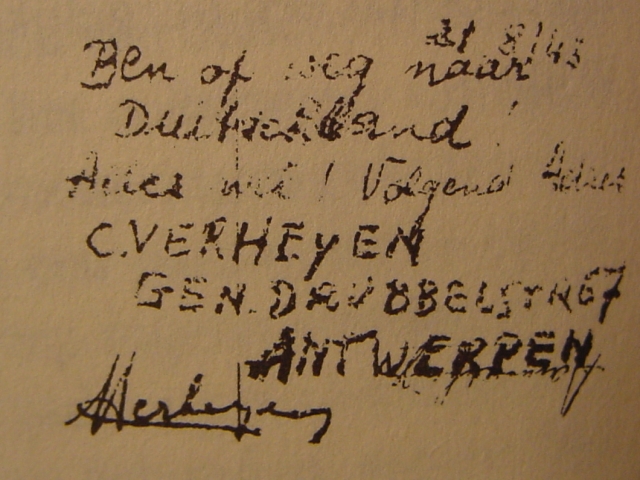 21/8/43
Ben op weg naar
Duitschland!
Alles wel! Volgend Adres
C.VERHEYEN
GEN.DRUBBELSTR 67
ANTWERPEN
Verheyen